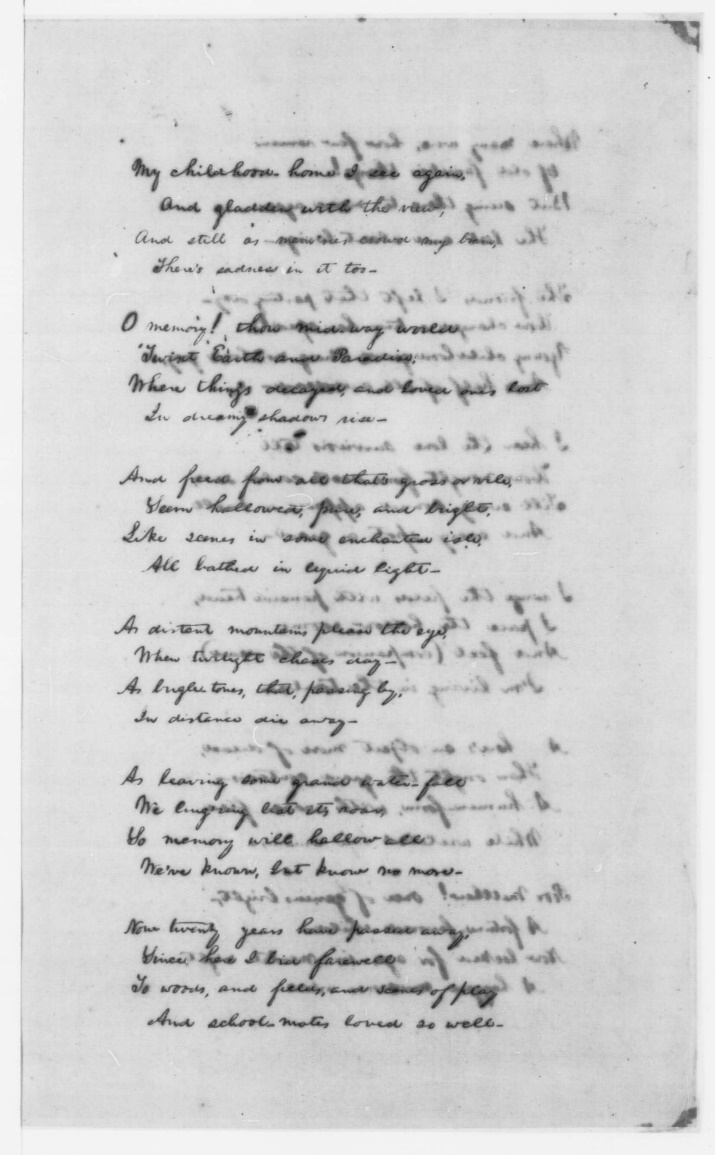 My childhood-home I see again,
And gladden with the view;
And still as mem'ries crowd my brain,
There's sadness in it too—
O memory! thou mid-way world
'Twixt Earth and Paradise,
Where things decayed, and loved ones lost
In dreamy shadows rise—
And freed from all that's gross or vile,
Seem hallowed, pure, and bright,
Like scenes in some enchanted isle,
All bathed in liquid light—
As distant mountains please the eye,
When twilight chases day—
As bugle-tones, that, passing by,
In distance die away—
As leaving some grand water-fall
We ling'ring list its roar,
So memory will hallow all
We've known, but know no more—
Now twenty years have passed away,
Since here I bid farewell
To woods, and fields, and scenes of play
And school-mates loved so well—